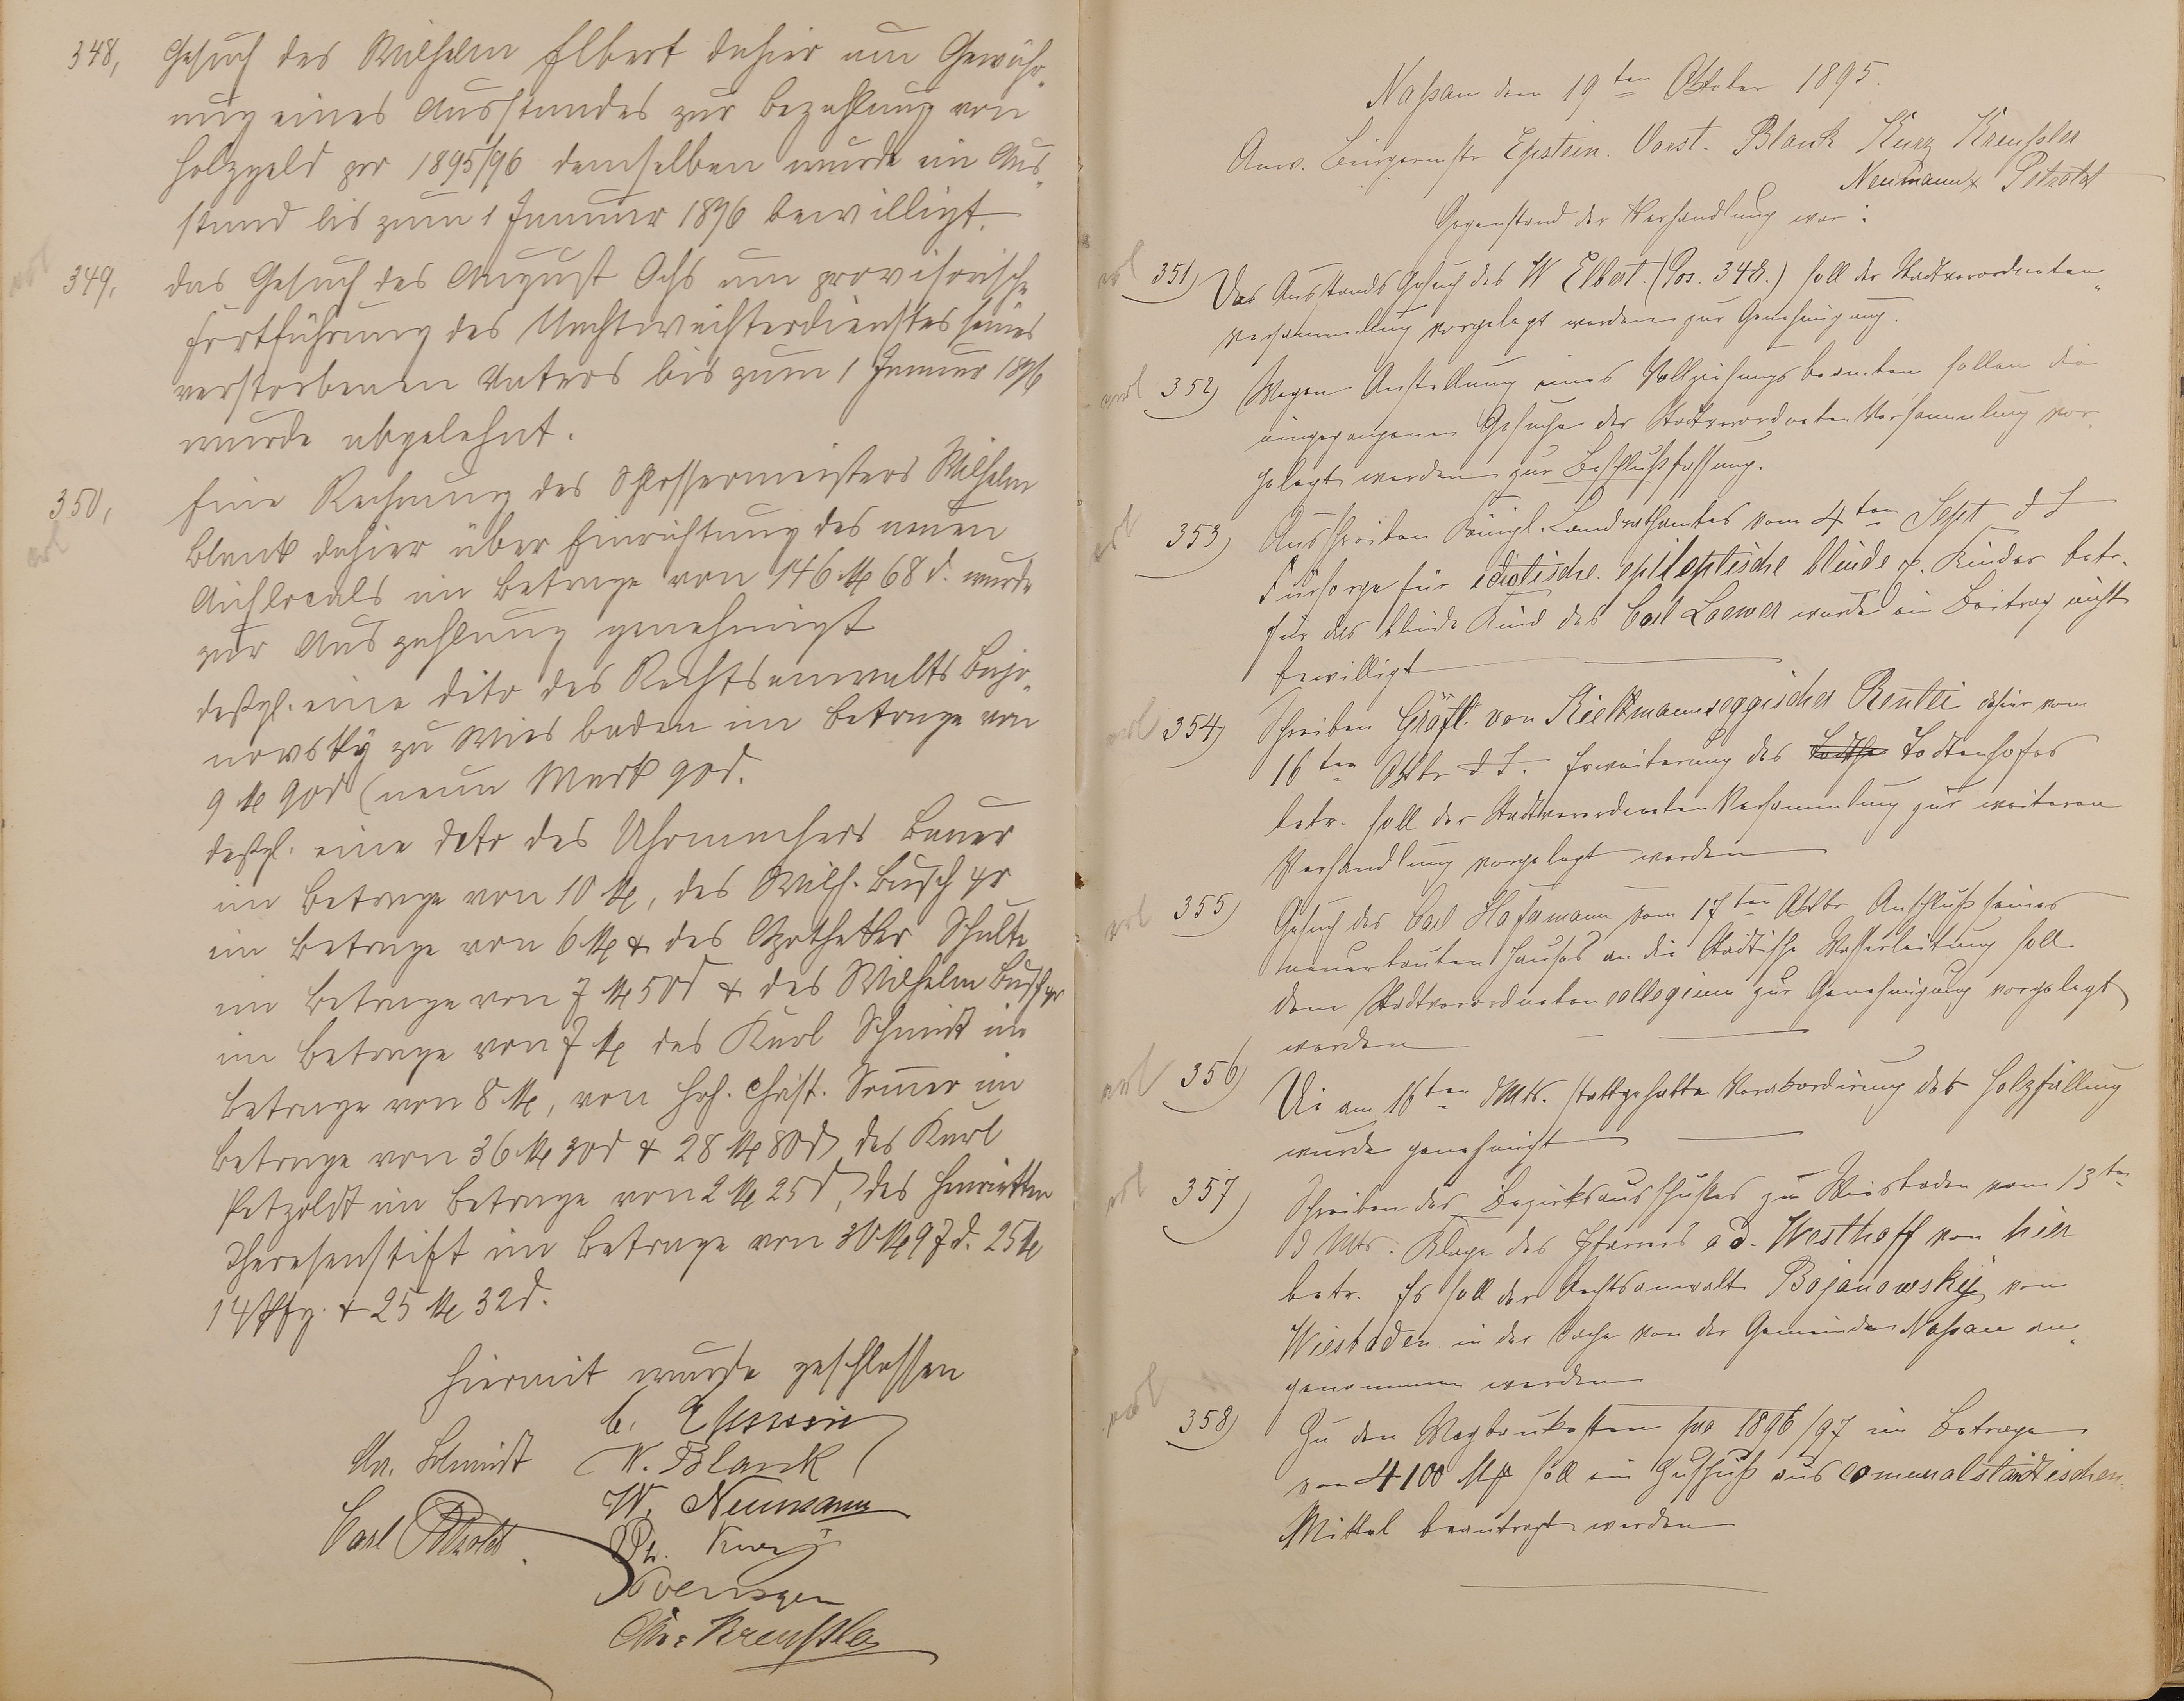 348, Gesuch des Wilhelm Elbert dahier um Gewäh-
rung eines Ausstandes zur Bezahlung von
Holzgeld pro 1895/96 demselben wurde ein Aus-
stand bis zum 1 Januar 1896 bewilligt.
erl
349, das Gesuch des August Ochs um provisorische
Fortführung des Nachtwächterdienstes seines
verstorbenen Vaters bis zum 1 Januar 1896
wurde abgelehnt.
350, Eine Rechnung des Schlossermeisters Wilhelm
erl
Blank dahier über Einrichtung des neuen
Aichlocals im Betrage von 146 M 68 d. wurde
zur Auszahlung genehmigt
deßgl. eine dito des Rechtsanwalts Bojo-
nowsky zu Wiesbaden im Betrage von
9 M 90 d (neun Mark 90 d.
deßgl. eine dito des Uhrmachers Bauer
im Betrage von 10 M, des Wilh. Busch
im Betrage von 6 M & des Apotheker Schulte
im Betrage von 7 M 50 d & des Wilhelm Busch
im Betrage von 7 M des Karl Schmidt im
Betrage von 8 M, von Joh. Christ. im
Betrage von 36 M 90 d & 28 M 80 d des Karl
Petzoldt im Betrage von 2 M 25 d, des Henrietten
Theresenstift im Betrage von 30 M 97 d. 25 M
14 Pfg. & 25 M 32 d.
Hiermit wurde geschlossen
C. Epstein
Chr. Schmidt W. Blank
W. Neumann
Carl Petzoldt. Ph. Kurz
Chr: Kreußler
Naßau den 19ten Oktober 1895.
Anw. Bürgermstr Epstein. Vorst. Blank Kurz Kreußler
Neumann & Petzoldt
Gegenstand der Verhandlung war:
erl 351) Das Ausstands Gesuch des W Elbert. (Pos. 348.) soll der Stadtverordneten-
versammlung vorgelegt werden zur Genehmigung.
erl 352) Wegen Anstellung eines Vollziehungsbeamten sollen die
eingegangenen Gesuche der Stadtverordneten Versammlung vor-
gelegt werden zur Beschlußfassung.
erl 353) Ausschreiben Königl. Landrathsamtes vom 4ten Sept d J
Fürsorge für idiotische. epileptische blinde p. Kinder betr.
für das blinde Kind des Carl Loewer wurde ein Beitrag nicht
bewilligt
erl 354) Schreiben Gräfl. von Kielmannseggischer Rentei dahier vom
16ten Oktbr d J. Erweiterung des Todtenhofes
betr. soll der Stadtverordneten Versammlung zur weiteren
Verhandlung vorgelegt werden
erl 355) Gesuch des Carl Hofmann vom 17ten Oktbr Anschluß seines
neuerbauten Hauses an die Städtische Wasserleitung soll
dem Stadtverordnetencollegium zur Genehmigung vorgelegt
werden
erl 356) Die am 16ten d Mts. stattgehabte Verakkordirung des Holzfällung
wurde genehmigt
erl 357) Schreiben des Bezirksausschußes zu Wiesbaden vom 13ten
d Mts. Klage des Pfarrers a.d. Westhoff von hier
betr. Es soll der Rechtsanwalt Bojanowsky von
Wiesbaden in der Sache von der Gemeinde Naßau an-
genommen werden
erl 358) Zu den Wegbaukosten pro 1896/97 im Betrage
von 4100 M soll ein Zuschuß aus comunalständischen
Mittel beantragt werden